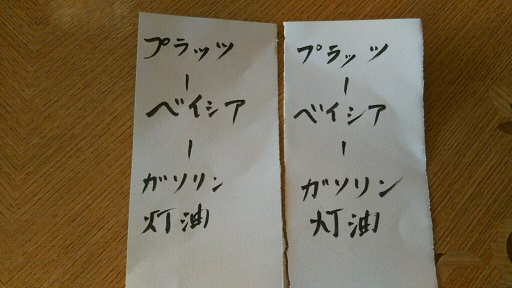 プラッツ
ー
ベイシア
ー
ガソリン
灯油
プラッツ
ー
ベイシア
ー
ガソリン
灯油